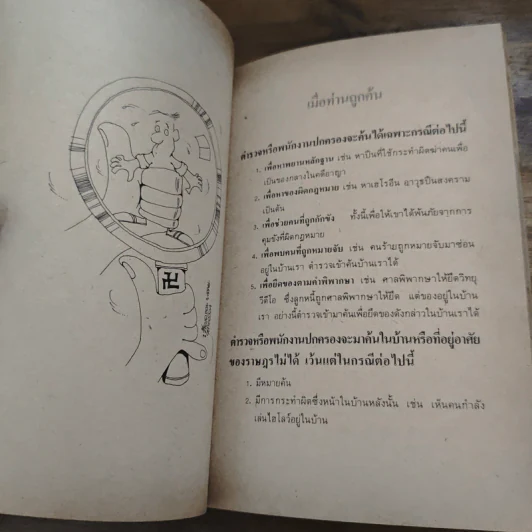 เมื่อท่านถูกค้น
ตำรวจหรือพนักงานปกครองจะค้นได้เฉพาะกรณีต่อไปนี้
1. เพื่อหาพยานหลักฐาน เช่น หาปืนที่ใช้กระทำผิดฆ่าคนเพื่อ
เป็นของกลางในคดีอาญา
2. เพื่อหาของผิดกฎหมาย เช่น หาเฮโรอีน อาวุธปืนสงคราม
เป็นต้น
3. เพื่อช่วยคนที่ถูกกักขัง ทั้งนี้เพื่อให้เขาได้พ้นภัยจากการ
คุมขังที่ผิดกฎหมาย
4. เพื่อพบคนที่ถูกหมายจับ เช่น คนร้ายถูกหมายจับมาซ่อน
อยู่ในบ้านเรา ตำรวจเข้าค้นบ้านเราได้
5. เพื่อยึดของตามคำพิพากษา เช่น ศาลพิพากษาให้ยึดวิทยุ
วีดีโอ ซึ่งลูกหนี้ถูกศาลพิพากษาให้ยึด แต่ของอยู่ในบ้าน
เรา อย่างนี้ตำรวจเข้ามาค้นเพื่อยึดของดังกล่าวในบ้านเราได้
ตำรวจหรือพนักงานปกครองจะมาค้นในบ้านหรือที่อยู่อาศัย
ของราษฎรไม่ได้ เว้นแต่ในกรณีต่อไปนี้
1. มีหมายค้น
2. มีการกระทำผิดซึ่งหน้าในบ้านหลังนั้น เช่น เห็นคนกำลัง
เล่นไฮโลว์อยู่ในบ้าน